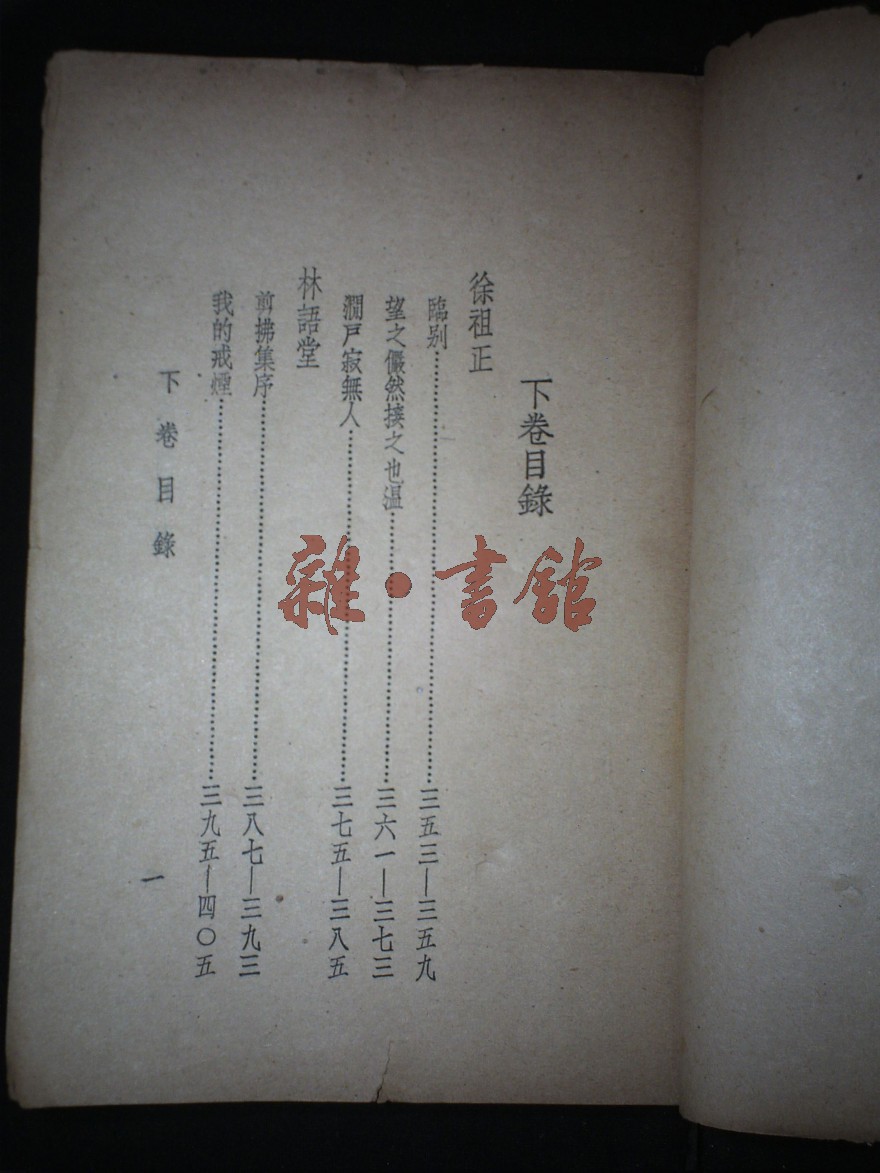 下卷目錄
徐祖正
臨別⋯⋯⋯⋯⋯⋯三五三—三五九
望之儼然接之也溫⋯⋯⋯⋯⋯⋯三六一—三七三
澗戸寂無人⋯⋯⋯⋯⋯⋯三七五—三八五
林語堂
剪拂集序⋯⋯⋯⋯⋯⋯三八七—三九三
我的戒煙⋯⋯⋯⋯⋯⋯三九五—四〇五
下卷目錄
一
雜·書館